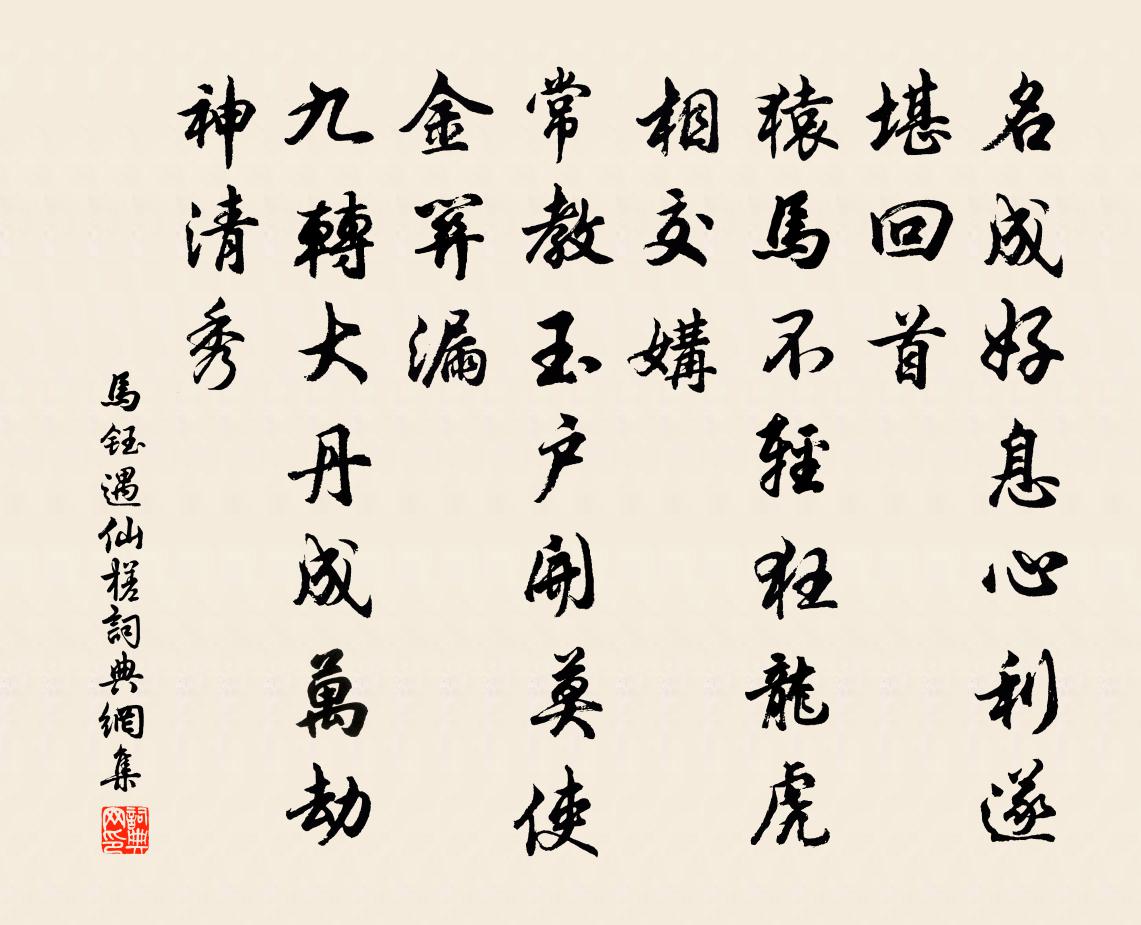 名成好息心利遂
堪回首
猿馬不輕狂龍虎
相交媾
常教玉户開莫使
金関漏
九轉大丹成萬劫
神清秀
馬鈺遇仙槎詞典網集
詞典网印